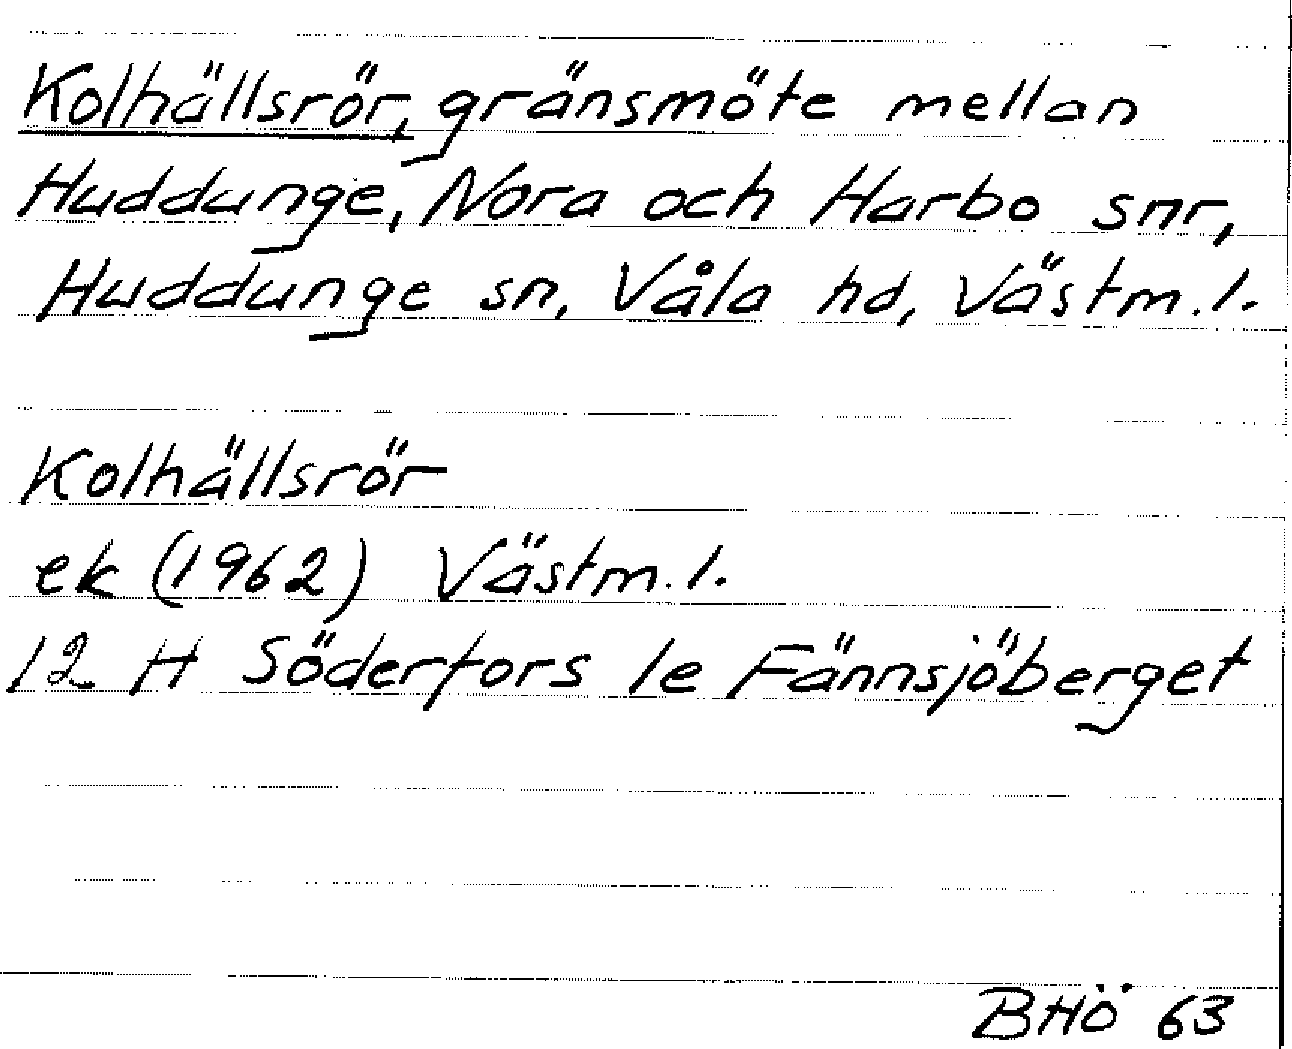 Kolhällsrör, gränsmöte mellan
Huddunge, Nora och Harbo snr,
Huddunge sn, Våla hd, Västm.l.
Kolhällsrör
ek (1962) Västm.l.
12 H Söderfors 1e Fännsjöberget
BHÖ 63